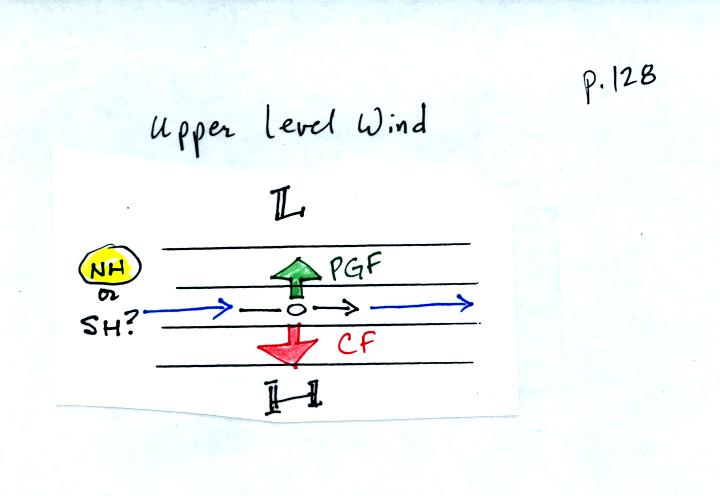 p.128
Upper Level Wind
L
NH
or
SH?
PGF
CF
H